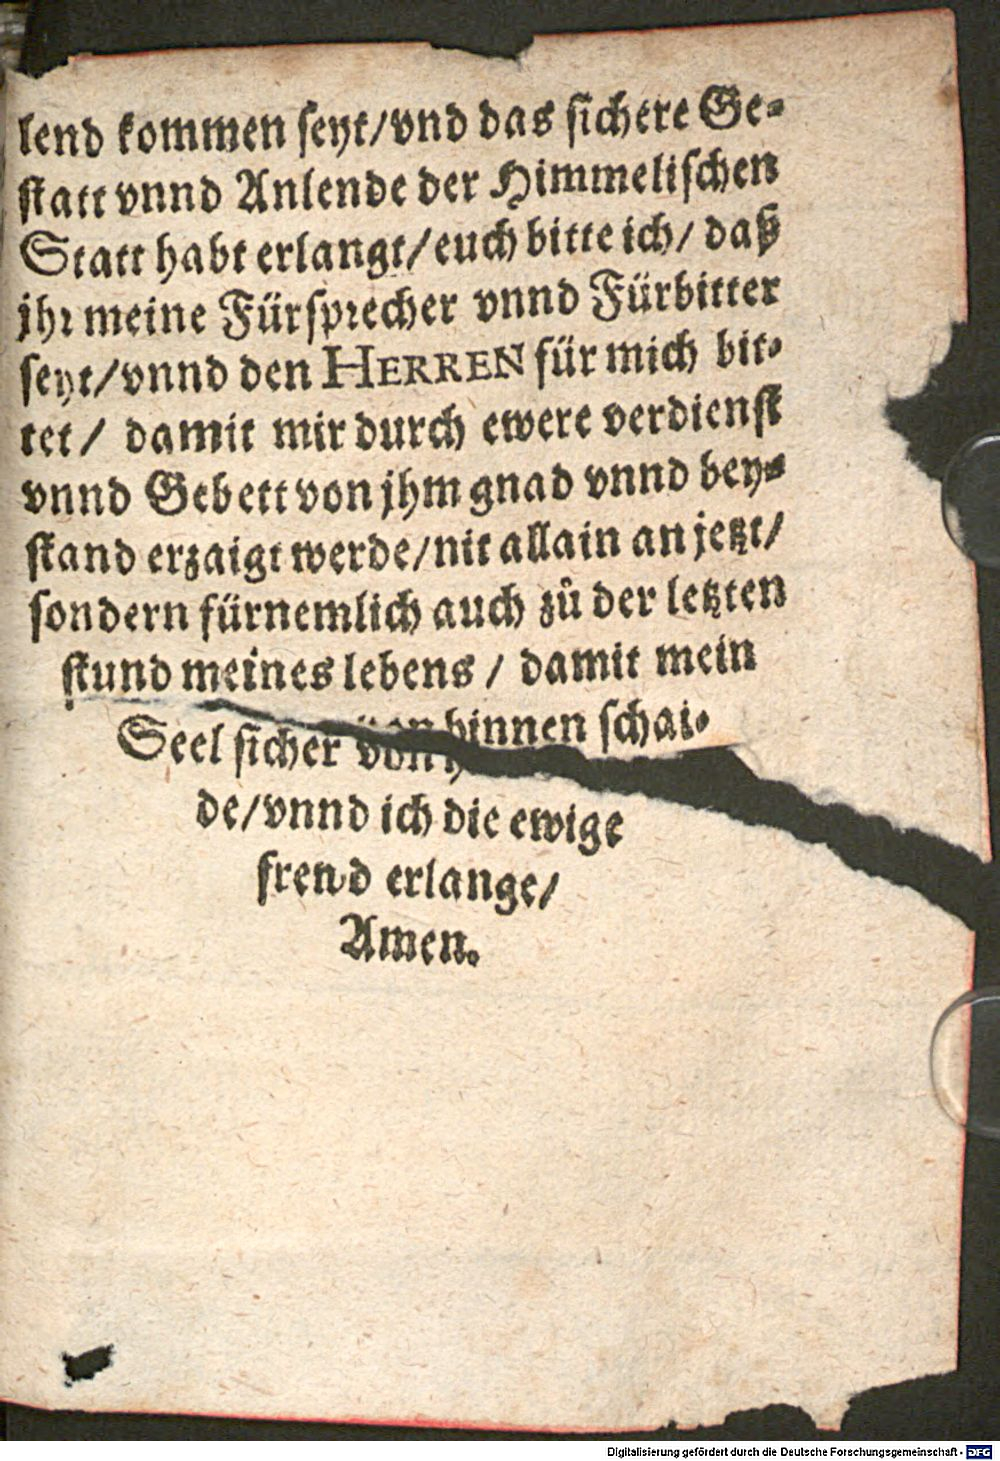 lend kommen seyt/vnd das sichere Ge-
statt vnnd Anlende der Himmelischen
Statt habt erlangt/euch bitte ich/ daß
jhr meine Fürsprecher vnnd Fürbitter
seyt/vnnd den HERREN für mich bit-
tet/ damit mir durch ewere verdienst
vnnd Gebett von jhm gnad vnnd bey-
stand erzaigt werde/nit allain an jetzt/
sondern fürnemlich auch zů der letzten
stund meines lebens / damit mein
Seel sicher von hinnen schai-
de/vnnd ich die ewige
frewd erlange/
Amen.
Digitalisierung gefördert durch die Deutsche Forschungsgemeinschaft - DFG